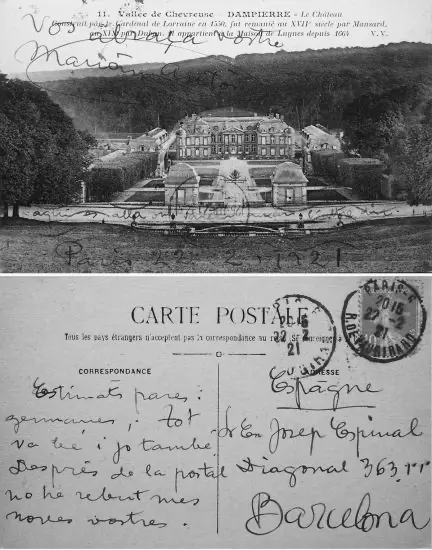 11. Vallée de Chevreuse DAMPIERRE - Le Château
Construit par le Cardinal de Lorraine en 1550, fut remanié au XVIIe siècle par Mansard,
au XIXe par Duban. Il appartient à la Maison de Luynes depuis 1664 V. V.
Vos abraça vostre
París 22-2-1921
CARTE POSTALE
Tous les pays étrangers n'acceptent pas la correspondance au recto. (Se renseigner
CORRESPONDANCE
ADRESSE
Estimats pares:
germanes,: tot
va bé i jo també.
Després de la postal
no he rebut mes
noves vostres.
Espagne
Sr En Josep Espinal
Diagonal 363
Barcelona
PARIS
20 15
22 - 2
21
PARIS
20 15
22 - 2
21